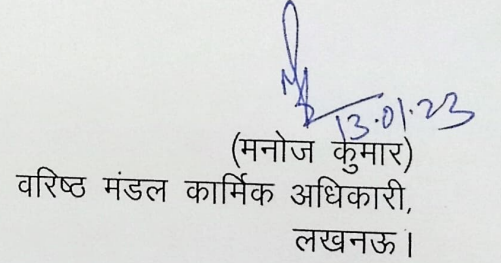 13.01.23
(मनोज कुमार)
वरिष्ठ मंडल कार्मिक अधिकारी,
लखनऊ।